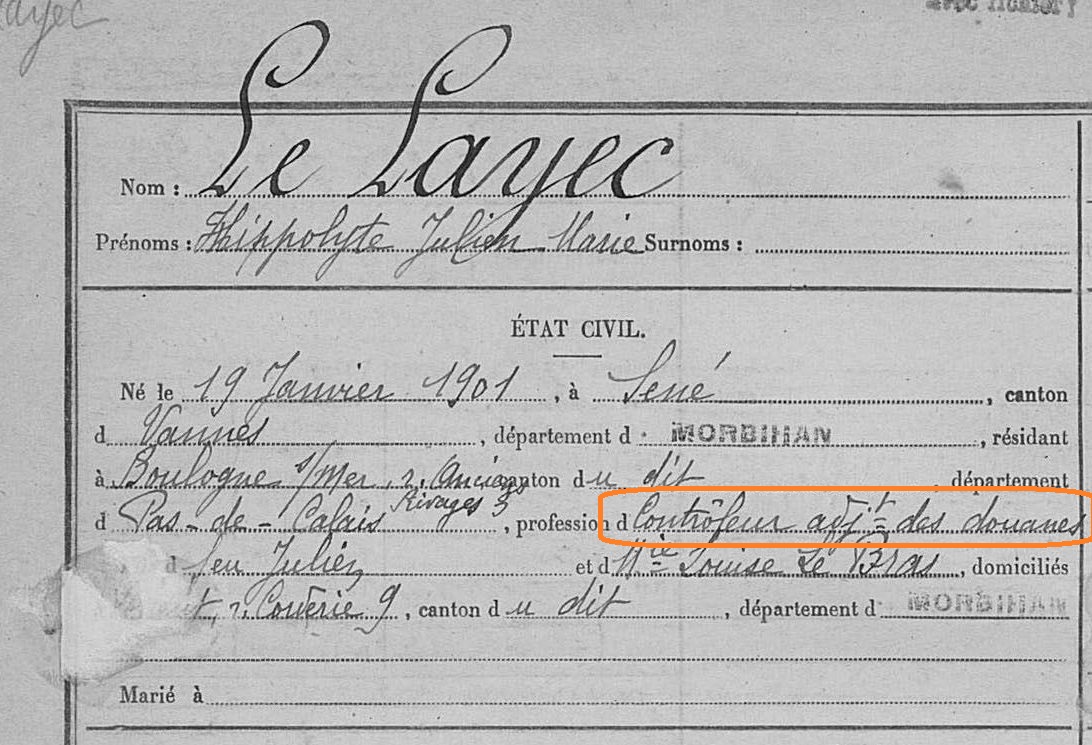 ayec
Le Layec
Nom :
Prénoms : Hippolyte Julien Marie Surnoms :
ÉTAT CIVIL.
Né le 19 Janvier 1901, à Sené, canton
d Vannes, département d MORBIHAN, résidant
à Boulogne s/Mer, r. Anciens Rivages 3 canton du dit, département
d Pas-de-Calais, profession d Contrôleur adjt des douanes
d feu Julien et d Mie Louise Le Bras, domiciliés
r. 9, canton du dit, département d MORBIHAN
Marié à